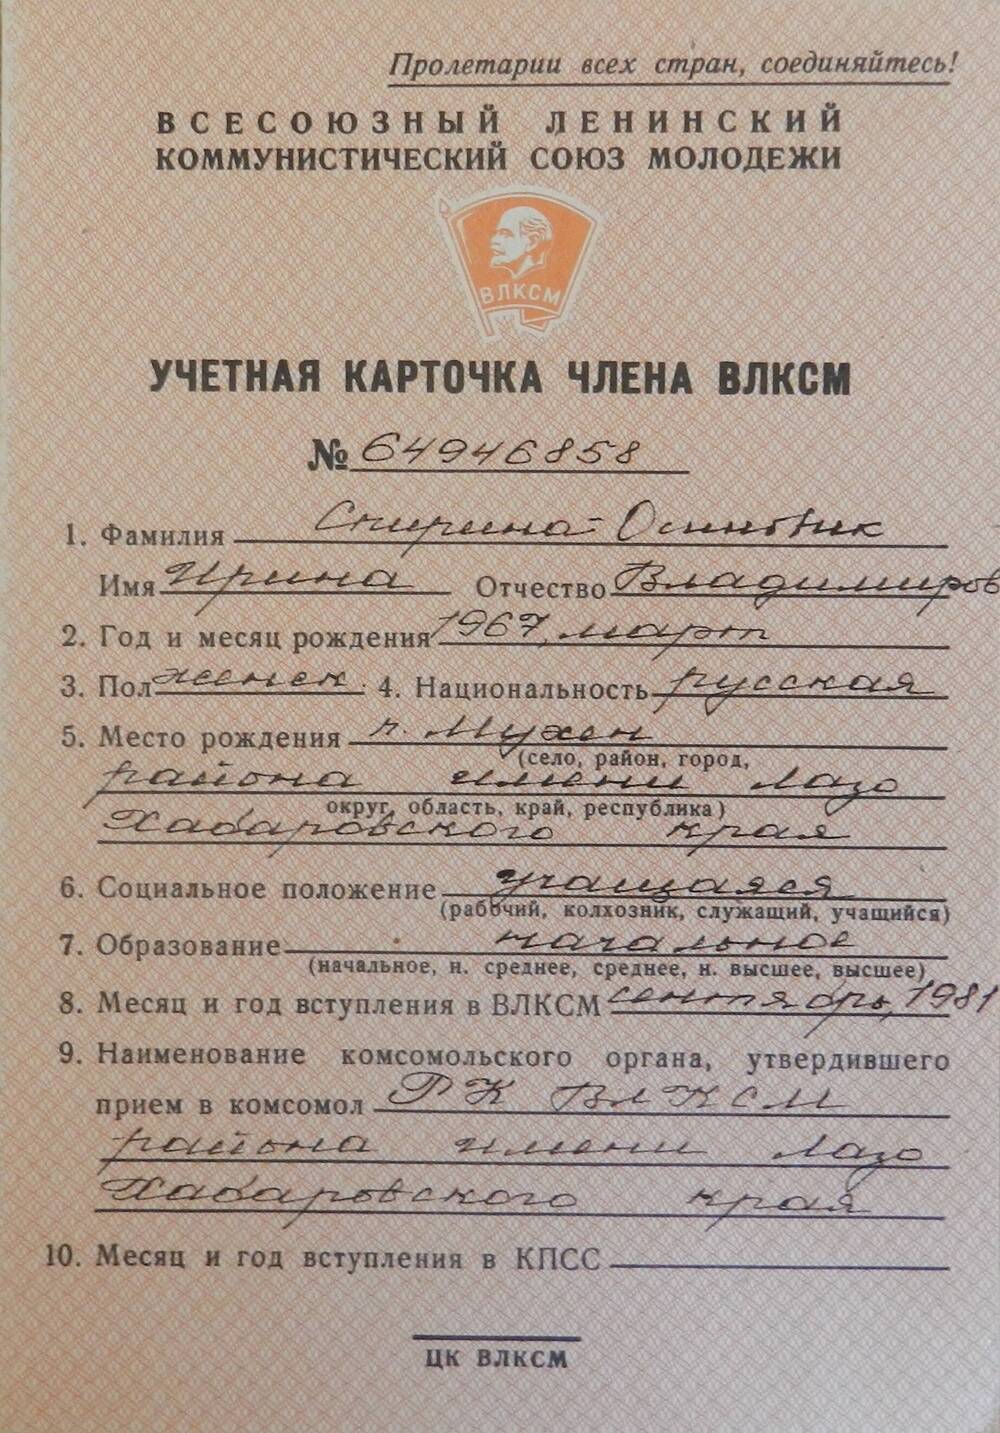 Пролетарии всех стран, соединяйтесь!
ВСЕСОЮЗНЫЙ ЛЕНИНСКИЙ
КОММУНИСТИЧЕСКИЙ СОЮЗ МОЛОДЕЖИ
ВЛКСМ
УЧЕТНАЯ КАРТОЧКА ЧЛЕНА ВЛКСМ
№ 64946858
1. Фамилия Спирина-
Имя Ирина Отчество Владимиров
2. Год и месяц рождения 1967, март
3. Пол женск. 4. Национальность русская
5. Место рождения п. Мухен
(село, район, город,
района имени Лазо
округ, область, край, республика)
Хабаровского края
6. Социальное положение учащаяся
(рабочий, колхозник, служащий, учащийся)
7. Образование начальное
(начальное, н. среднее, среднее, н. высшее, высшее)
8. Месяц и год вступления в ВЛКСМ сентябрь, 1981
9. Наименование комсомольского органа, утвердившего
прием в комсомол РК ВЛКСМ
района имени Лазо
Хабаровского края
10. Месяц и год вступления в КПСС
ЦК ВЛКСМ